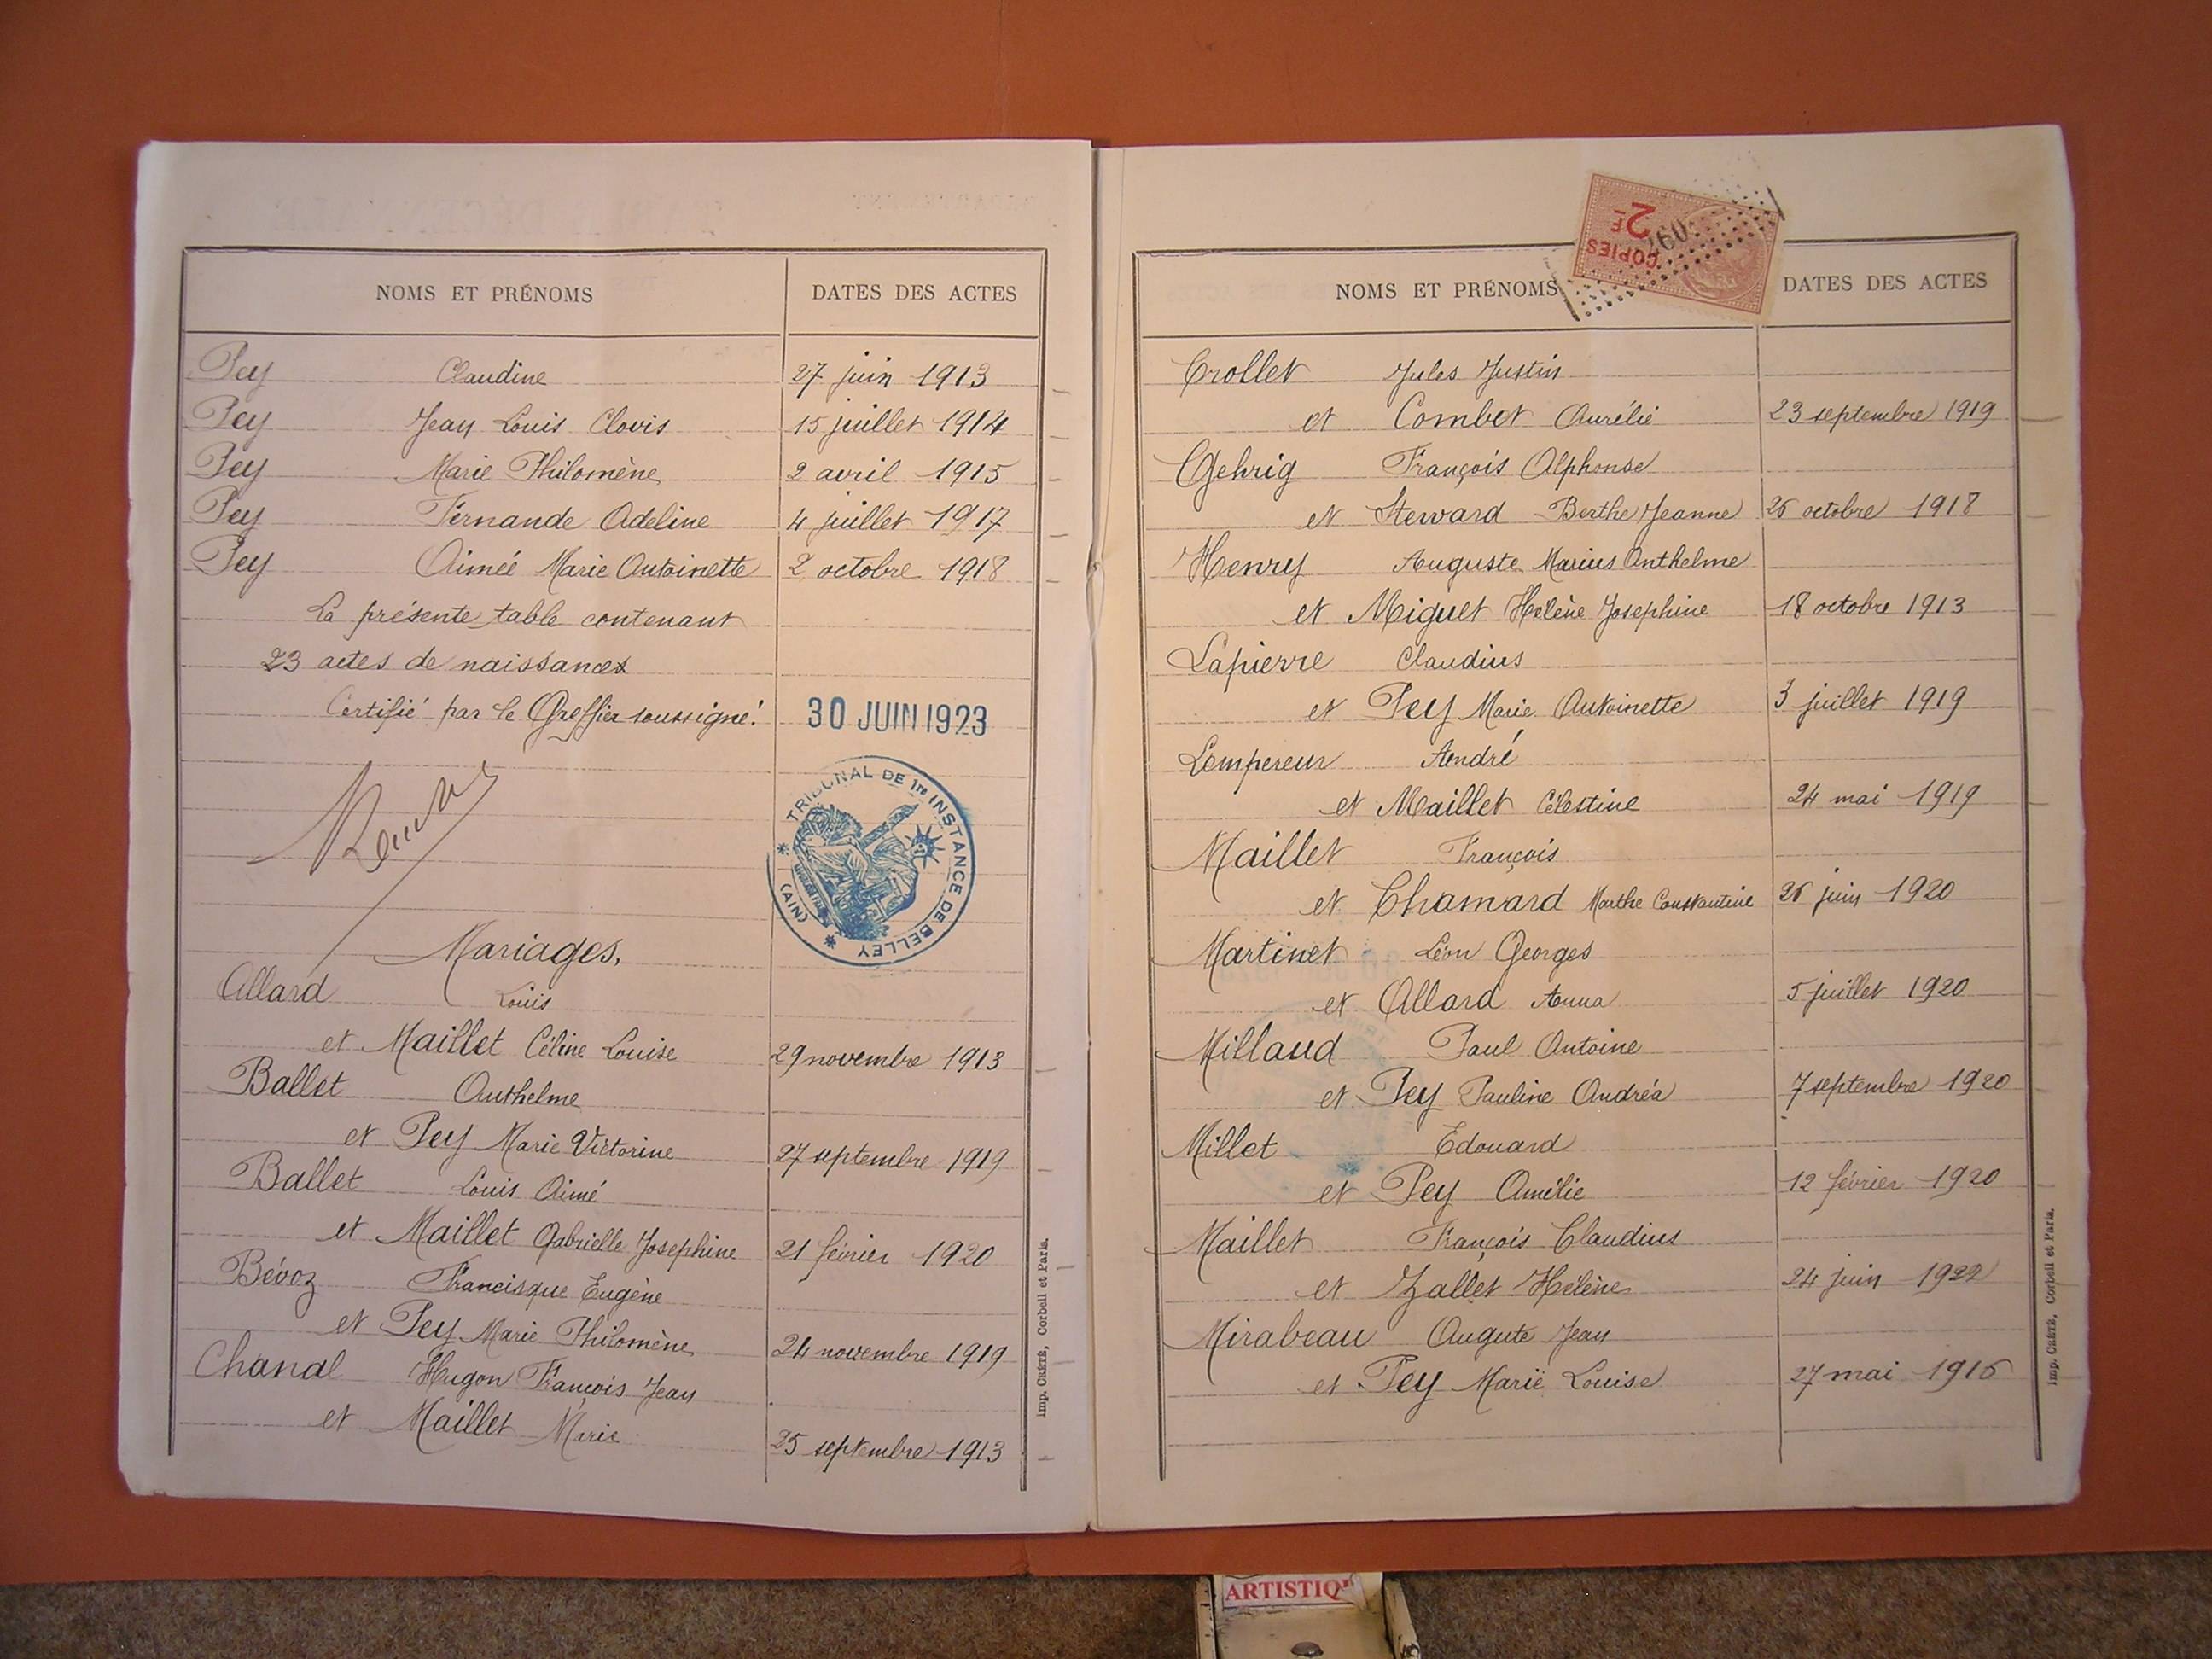 NOMS ET PRÉNOMS DATES DES ACTES
Pey Claudine 27 juin 1913
Pey Jean Louis Clovis 15 juillet 1914
Pey Marie Philomène 2 avril 1915
Pey Fernande Adeline 4 juillet 1917
Pey Aimée Marie Antoinette 2 octobre 1918
La présente table contenant
23 actes de naissances
Certifié par le Greffier soussigné!
30 JUIN 1923
TRIBUNAL DE 1re INSTANCE DE BELLEY
(AIN)
Mariages.
Allard Louis
et Maillet Céline Louise 29 novembre 1913
Ballet Anthelme
et Pey Marie Victorine 27 septembre 1919
Ballet Louis Aimé
et Maillet Gabrielle Josephine 21 février 1920
Bévoz Francisque Eugène
et Pey Marie Philomène 24 novembre 1919
Chanal Hugon François Jean
et Maillet Marie 25 septembre 1913
Imp. CRÉTÉ, Corbeil et Paris.
COPIES
2F
NOMS ET PRÉNOMS DATES DES ACTES
Crollet Jules Justin
et Combet Aurélie 23 septembre 1919
Gehrig François Alphonse
et Steward Berthe Jeanne 26 octobre 1918
Henry Auguste Marius Anthelme
et Miguet Hélène Josephine 18 octobre 1913
Lapierre Claudius
et Pey Marie Antoinette 3 juillet 1919
Lempereur André
et Maillet Célestine 24 mai 1919
Maillet François
et Chamard Marthe Constantine 26 juin 1920
Martinet Léon Georges
et Allard Anna 5 juillet 1920
Millaud Paul Antoine
et Pey Pauline Andréa 7 septembre 1920
Millet Edouard
et Pey Amélie 12 février 1920
Maillet François Claudius
et Zallet Hélène 24 juin 1922
Mirabeau Auguste Jean
et Pey Marie Louise 27 mai 1916
Imp. CRÉTÉ, Corbeil et Paris.
ARTISTIQ